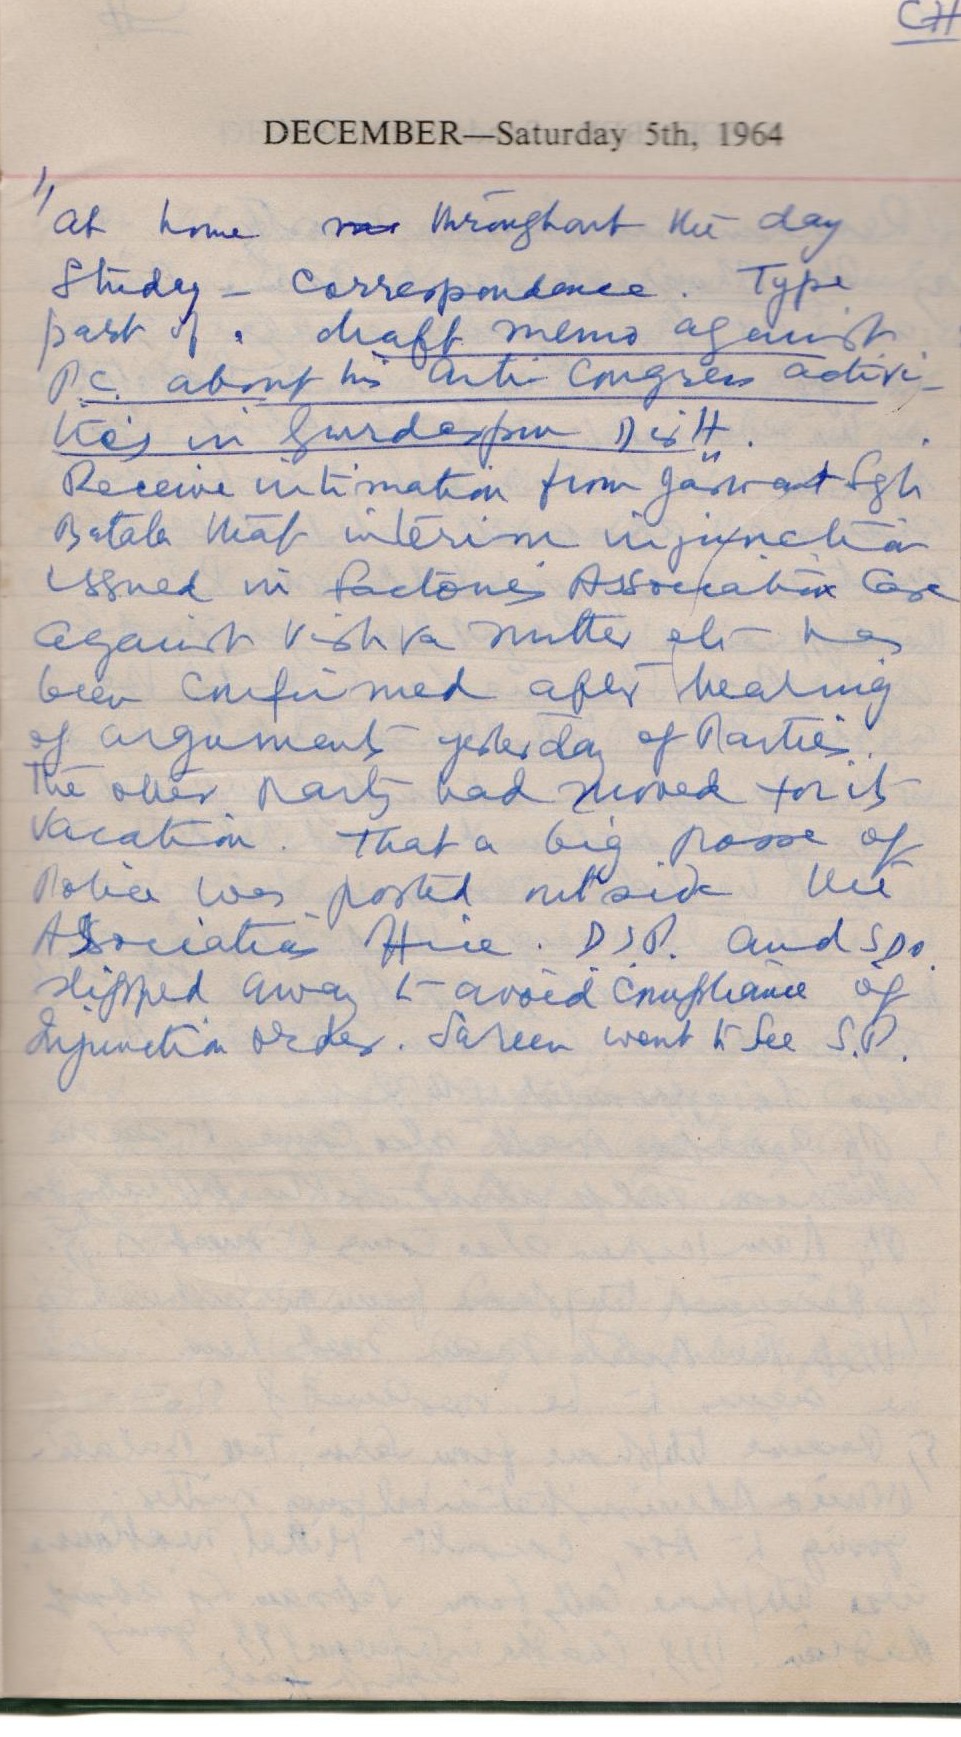 CH
DECEMBER—Saturday 5th, 1964
1/ At home throughout the day
Study - Correspondence. Type
part of a draft memo against
P.C. about his anti Congress activi-
ties in Gurdaspur Distt.
Receive intimation from Jaswant Sgh
Batala that interim injunction
issued in Factories Association Case
against Vishva Mitter etc has
been confirmed after hearing
of arguments yesterday of Parties.
The other party had moved for its
vacation. That a big posse of
Police was posted outside the
Association . D.S.P. and SDO.
slipped away to avoid compliance of
Injunction order. Sareen went to see S.P.